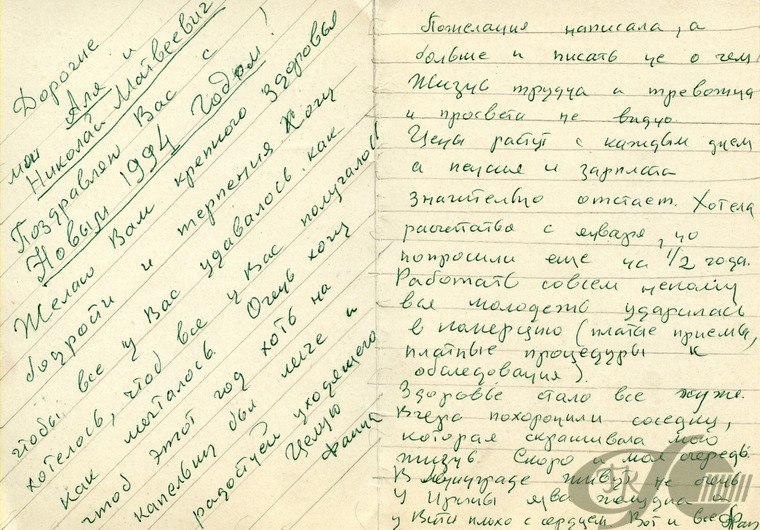 Дорогие
мои Аля и
Николай Матвеевич!
Поздравляю Вас с
Новым 1994 Годом!
Желаю Вам крепкого здоровья
бодрости и терпения Хочу
чтобы все у Вас удавалось как
хотелось, чтоб все у Вас получалось
как мечталось. Очень хочу
чтоб этот год хоть на
капельку был легче и
радостней уходящего
Целую
Пожелания написала, а
больше и писать не о чем
Жизнь трудна и тревожна
и просвета не видно.
Цены растут с каждым днем
а пенсия и зарплата
значительно отстает. Хотела
расчетатся с января, но
попросили еще на 1/2 года.
Работать совсем некому
вся молодежь ударилась
в комерцию (платные приемы,
платные процедуры к
обследования).
Здоровье стало все хуже.
Вчера похоронили соседку,
которая скрашивала мою
жизнь. Скоро и моя очередь.
В Ленинграде живут не очень
У Ирины язва желудка а
у Вити плохо с сердцем Вот и все